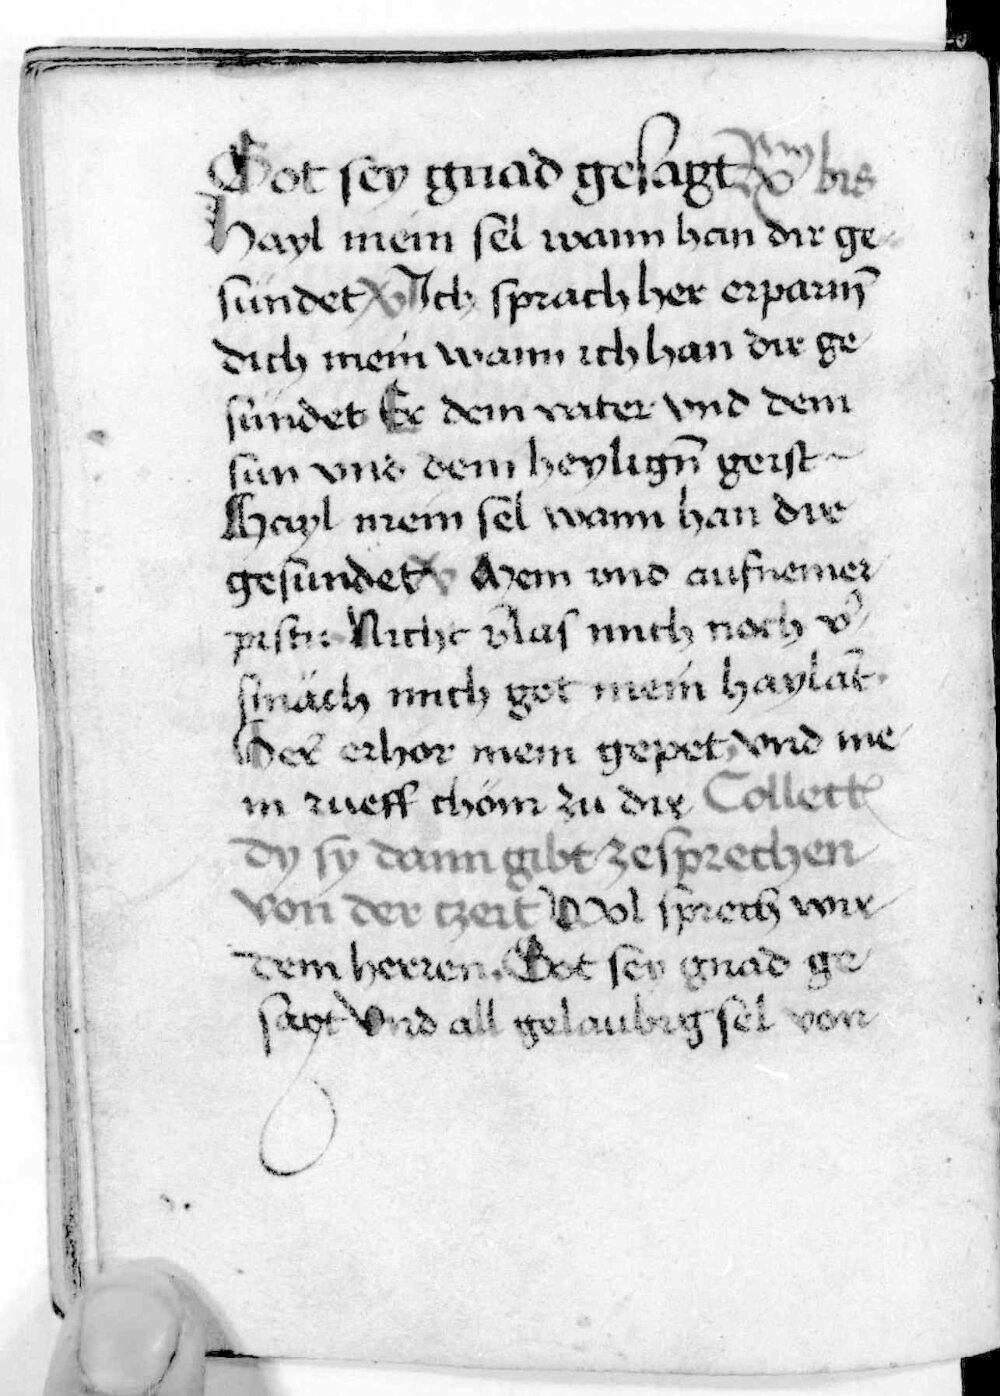 Got sey gnad gesagt bis
Hayl mein sel wann han dir ge
sündet V Ich sprach her erparm̄
dich mein wann ich han dir ge
sündet Er dem vater vnd dem
sun vnd dem heyligñ geist
Hayl mein sel wann han dir
gesündet V Mein vnd aufnemer
pistu Nicht v̄las mich noch v̄
smäch mich got mein haylāt.
Her erhor mein gepet vnd me
in rueff chöm zu dir Collect
dy sy dann gibt zesprechen
von der tzeit Wol sprech wir
dem herren. Got sey gnad ge
sagt Vnd all gelaubig sel von